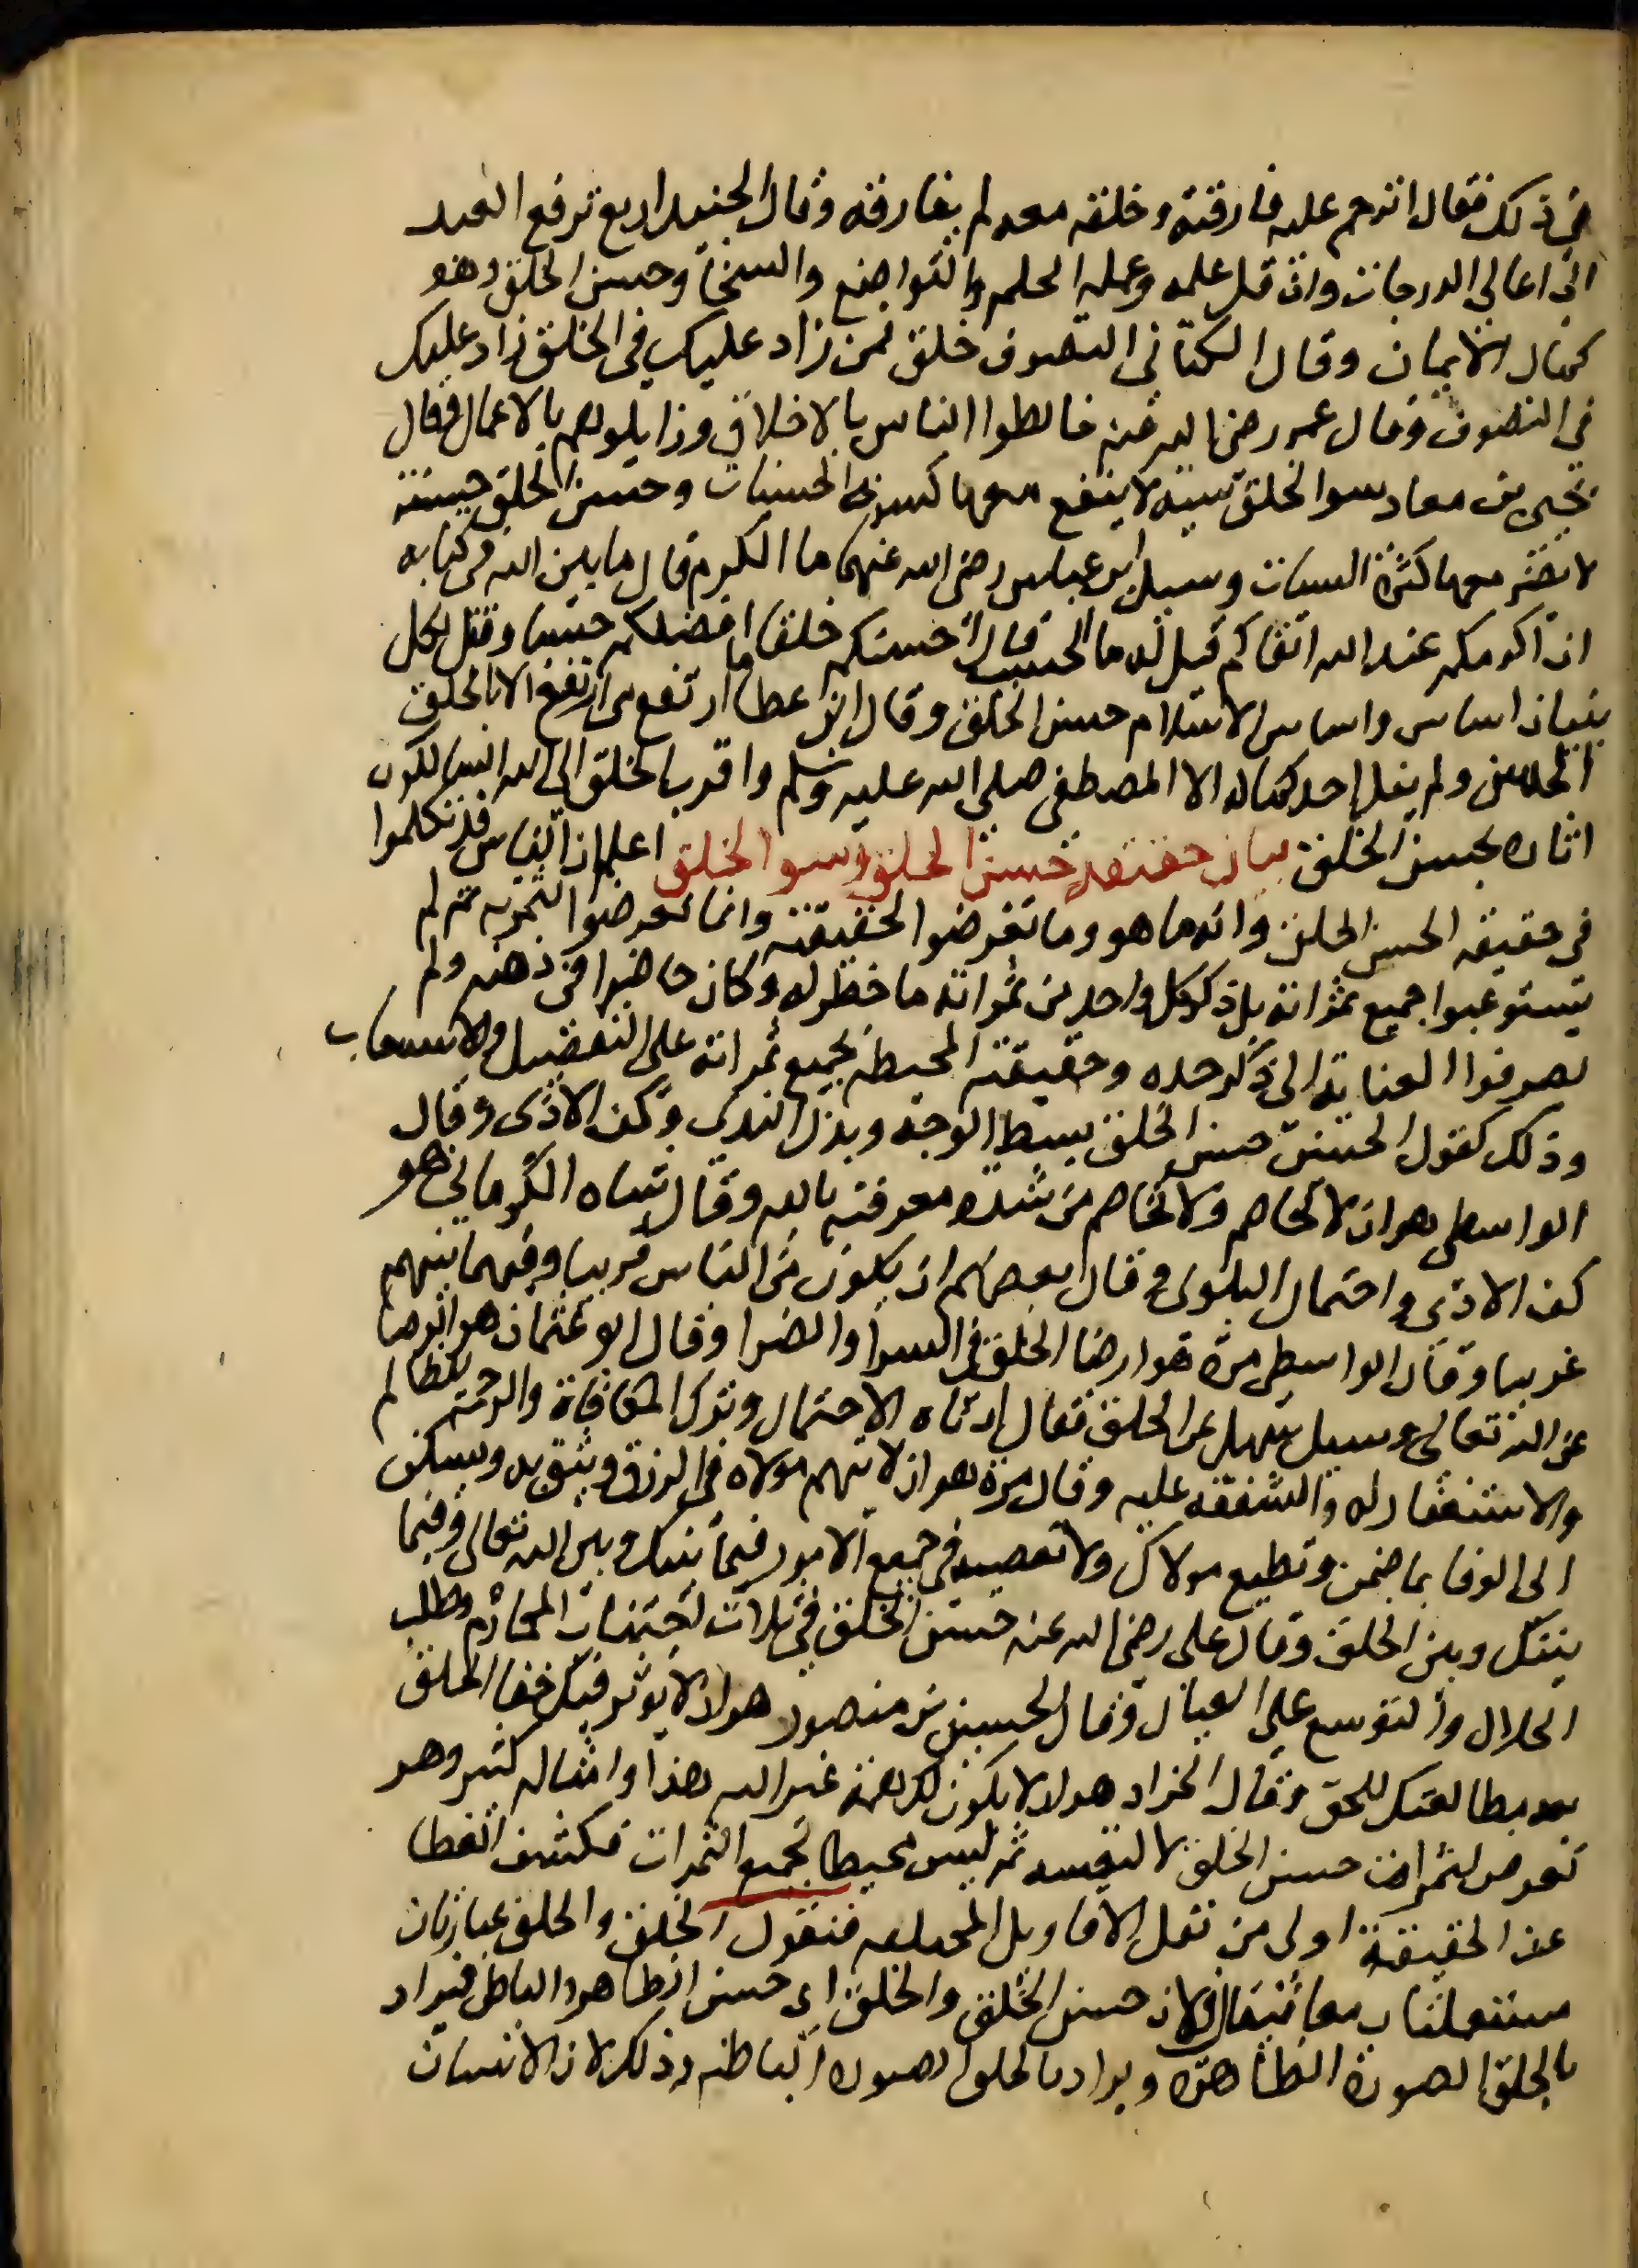 في ذلك فقال اترحم عليه فارقته وخلقه معه لم يفارقه وقال الجنيد اربع ترفع العبد
الى اعالى الدرجات وان قل علمه وعمله الحلم والتواضع والسخا وحسن الخلق وهو
كمال الايمان وقال الكتاني التصوف خلق فمن زاد عليك في الخلق زاد عليك
في التصوف وقال عمر رضى الله عنه خالطوا الناس بالاخلاق وزايلوهم بالاعمال وقال
يحيى بن معاد سوا الخلق سيئه لا ينفع معها كثرة الحسنات وحسن الخلق حسنة
لا تضر معها كثرة السيات وسيل ابن عباس رضى الله عنهما ما الكرم قال ما بين الله في كتابه
ان اكرمكم عند الله اتقاكم قيل له ما الحسب قال احسنكم خلقا افضلكم حسبا وقيل لكل
بنيان اساس واساس الاسلام حسن الخلق وقال ابن عطا ما ارتفع من ارتفع الا بالخلق
الحسن ولم ينل احد كماله الا المصطفى صلى الله عليه وسلم واقرب الخلق الى الله السالكون
اثاره بحسن الخلق بيان حقيقة حسن الخلق وسو الخلق اعلم ان الناس قد تكلموا
في حقيقه الحسن الخلق وانه ما هو وما تعرضوا الحقيقته وانما تعرضوا لثمرته ثم لم
يستوعبوا جميع ثمراته بل ذكر كل واحد من ثمراته ما خطر له وكان حاضرا في ذهنه ولم
يصرفوا العناية الى ذكر حده وحقيقته المحيطه بجميع ثمراته على التفصيل والاستيعاب
وذلك كقول الحسن حسن الخلق بسط الوجه وبذل الندى وكف الاذى وقال
الواسطى هو ان لا يخاصم ولا يخاصم من شده معرفته بالله وقال شاه الكرماني هو
كف الاذى واحتمال البلوى وقال بعضهم ان يكون من الناس قريبا وفيما بينهم
غريبا وقال الواسطى مرة هو ارضا الخلق في السرا والضرا وقال ابو عثمان هو الرضا
عن الله تعالى وسيل سهل عن الخلق فقال ادناه الاحتمال وترك المكافاة والرحمة للظالم
والاستغفار له والشفقه عليه وقال مرة هو ان لا يتهم مولاه في الرزق ويثق به ويسكن
الى الوفا بما ضمن وتطيع مولاك ولا تعصيه في جميع الامور فيما بينك وبين الله تعالى وفيما
بينك وبين الخلق وقال على رضى الله عنه حسن الخلق في ثلاث اجتناب المحارم وطلب
الحلال والتوسع على العيال وقال الحسين بن منصور هو ان لا يوثر فيك جفا الخلق
بعد مطالعتك للحق وقال الخراز هو ان لا يكون لك همة غير الله هذا وامثاله كثير وهو
تعرض لثمرات حسن الخلق لا لنفسه ثم ليس محيطا بجميع الثمرات فكشف الغطا
عن الحقيقة اولى من نقل الاقاويل المختلفه فنقول الخلق والخلق عبارتان
مستعملتان معا فيقال فلان حسن الخلق والخلق اى حسن الظاهر والباطن فيراد
بالخلق الصورة الظاهره ويراد بالخلق الصوره الباطنه وذلك لان الانسان